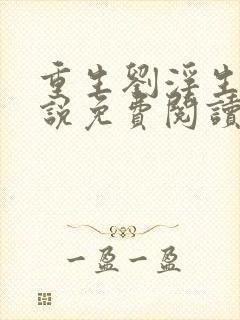 重生劉淫生
說免費閱讀
一盈一盈